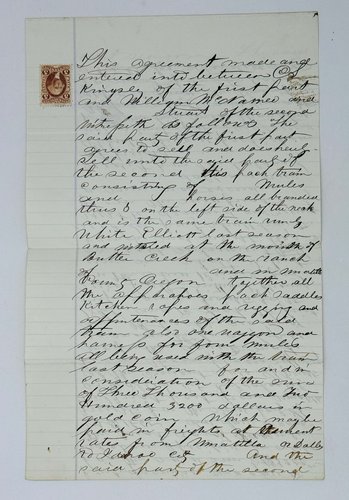 This agreement made and
entered into between
Kinyse of the first part
and William McNamee and
Stuart of the second
witnesseth as follows The
said party of the first part
agrees to sell and does hereby
sell unto the said party of
the second his pack train
consisting of Mules
and horses all branded
thus on the left side of the neck
and is the same train run by
White Elliott last season
and wintered at the mouth of
Butter Creek on the ranch
of and in Umatilla
County Oregon together all
the apparahoes pack saddles
Kitchen ropes and rigging and
appurtenances of the said
train also one waggon and
harness for four mules
all being used with the train
last season for and in
consideration of the sum
of Three Thousand and Two
Hundred 3200 dollars in
gold coin which may be
paid in freights at current
rates from Umatilla or Dalles
to Idaho City And the
said party of the second